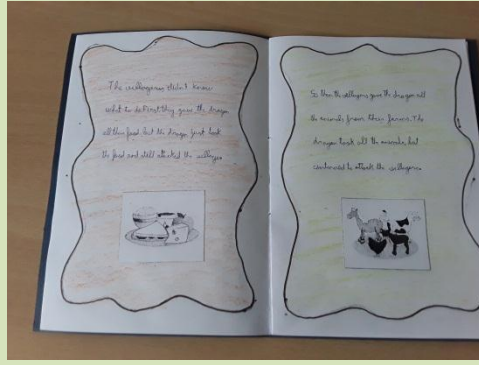 The villagers didn't know
what to do First they gave the dragon
all their food but the dragon just took
the food and still attacked the villages
So then the villagers gave the dragon all
the animals from their farms. The
dragon took all the animals but
continued to attack the villagers